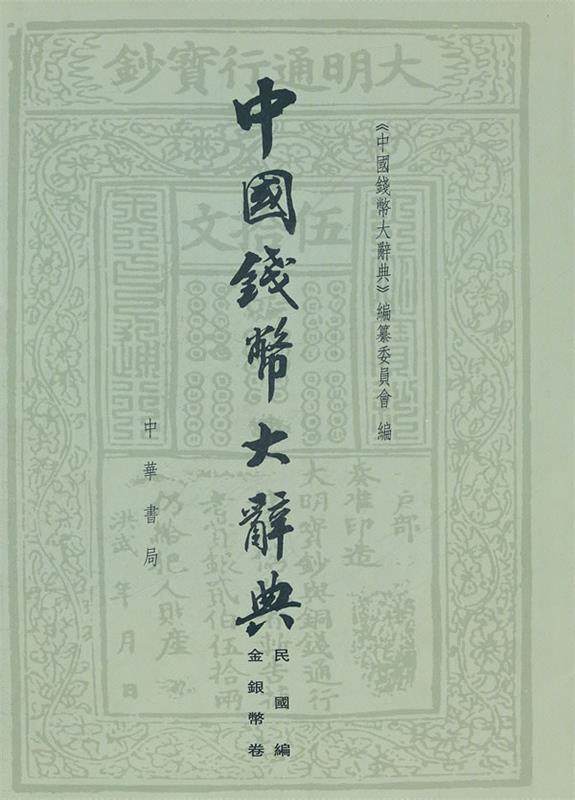 大明通行寶鈔
《中國錢幣大辭典》編纂委員會 編
中國錢幣大辭典
民國編
金銀幣卷
中華書局
伍拾文
戶部
奏准印造
大明寶鈔與銅錢通行
貳伯伍拾兩
仍給犯人財產
洪武 年 月 日